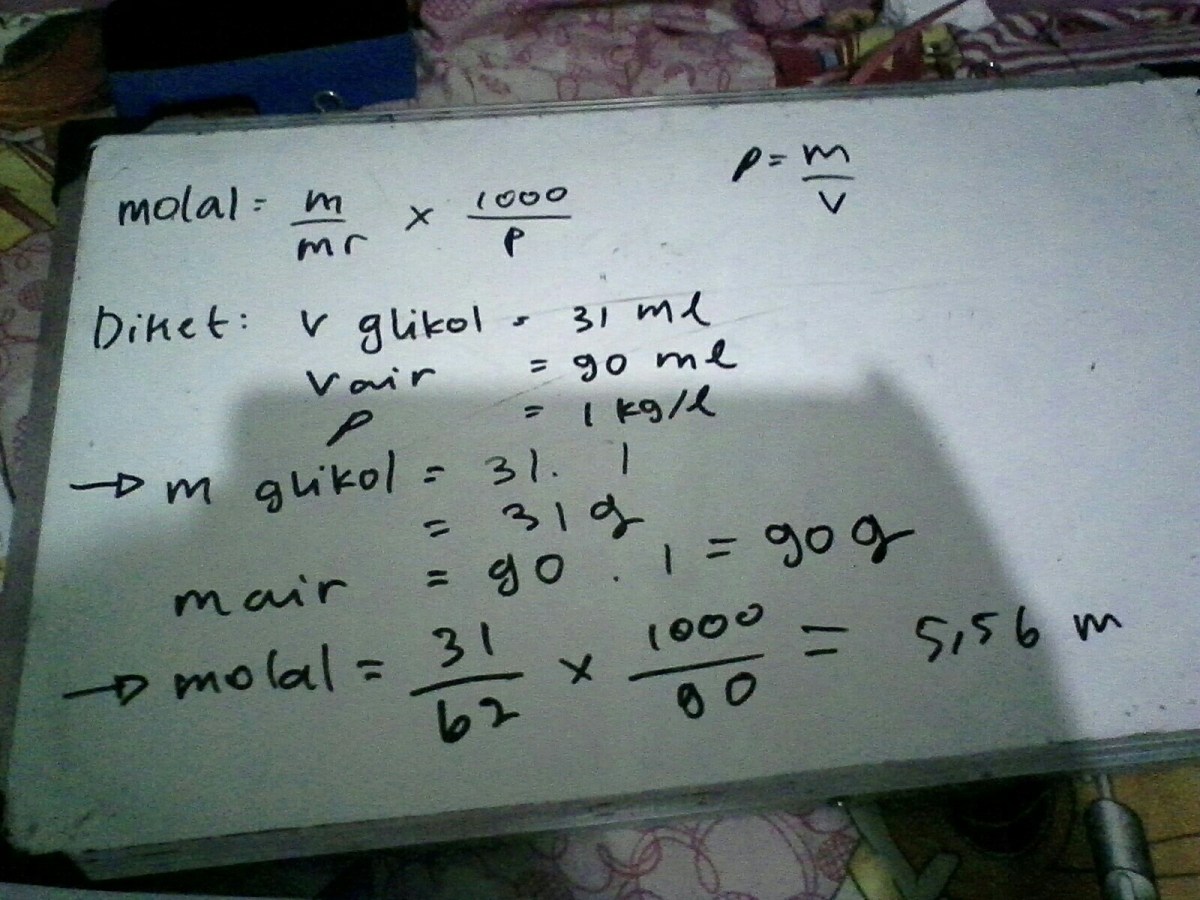 molal = m/mr × 1000/p
ρ = m/v
Diket: v glikol = 31 ml
v air = 90 ml
ρ = 1 kg/l
→ m glikol = 31 . 1
= 31 g
m air = 90 . 1 = 90 g
→ molal = 31/62 × 1000/90 = 5,56 m